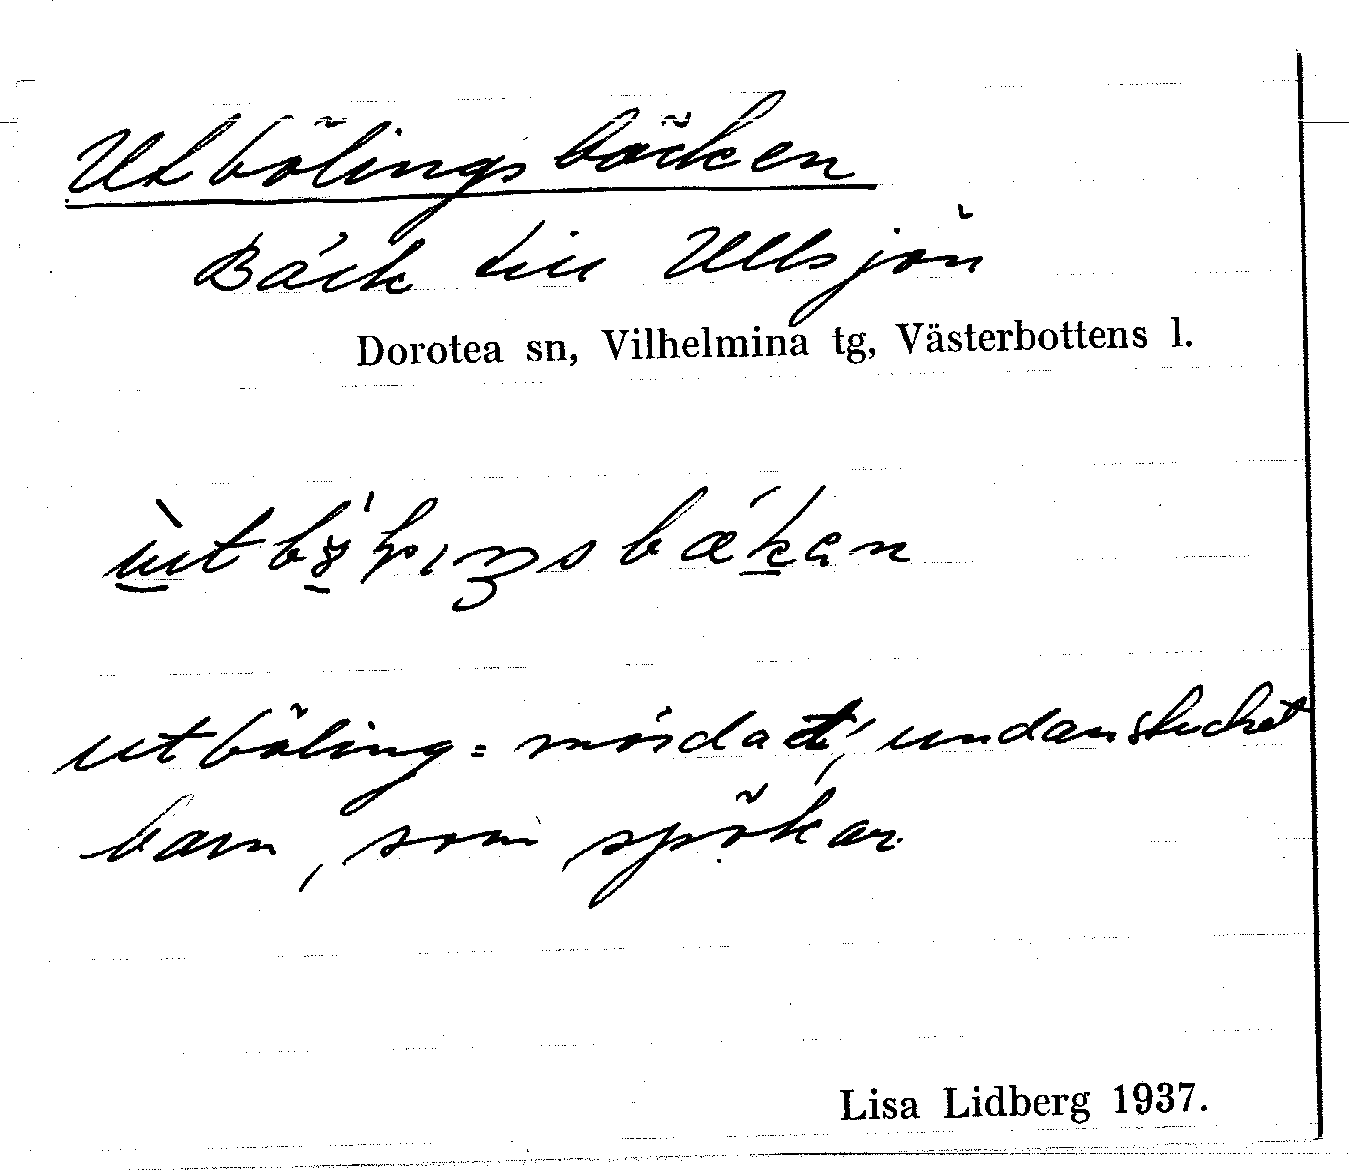 Utbölingsbäcken
Bäck till Ullsjön
Dorotea sn, Vilhelmina tg, Västerbottens l.
utböling = mördat, undanstucket
barn, som spökar.
Lisa Lidberg 1937.